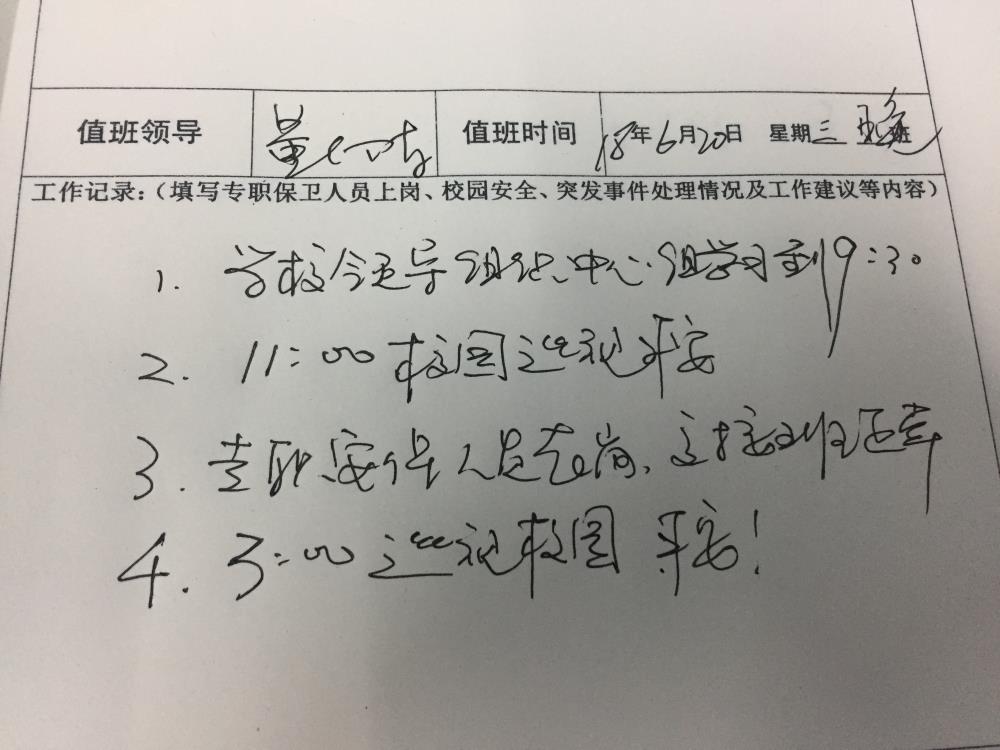 值班领导 值班时间 18年6月20日 星期三 班
工作记录:(填写专职保卫人员上岗、校园安全、突发事件处理情况及工作建议等内容)
1. 学校领导组织中心组学习到19:30
2. 11:00校园巡视平安
3. 专职安保人员在岗,
4. 3:00巡视校园 平安!